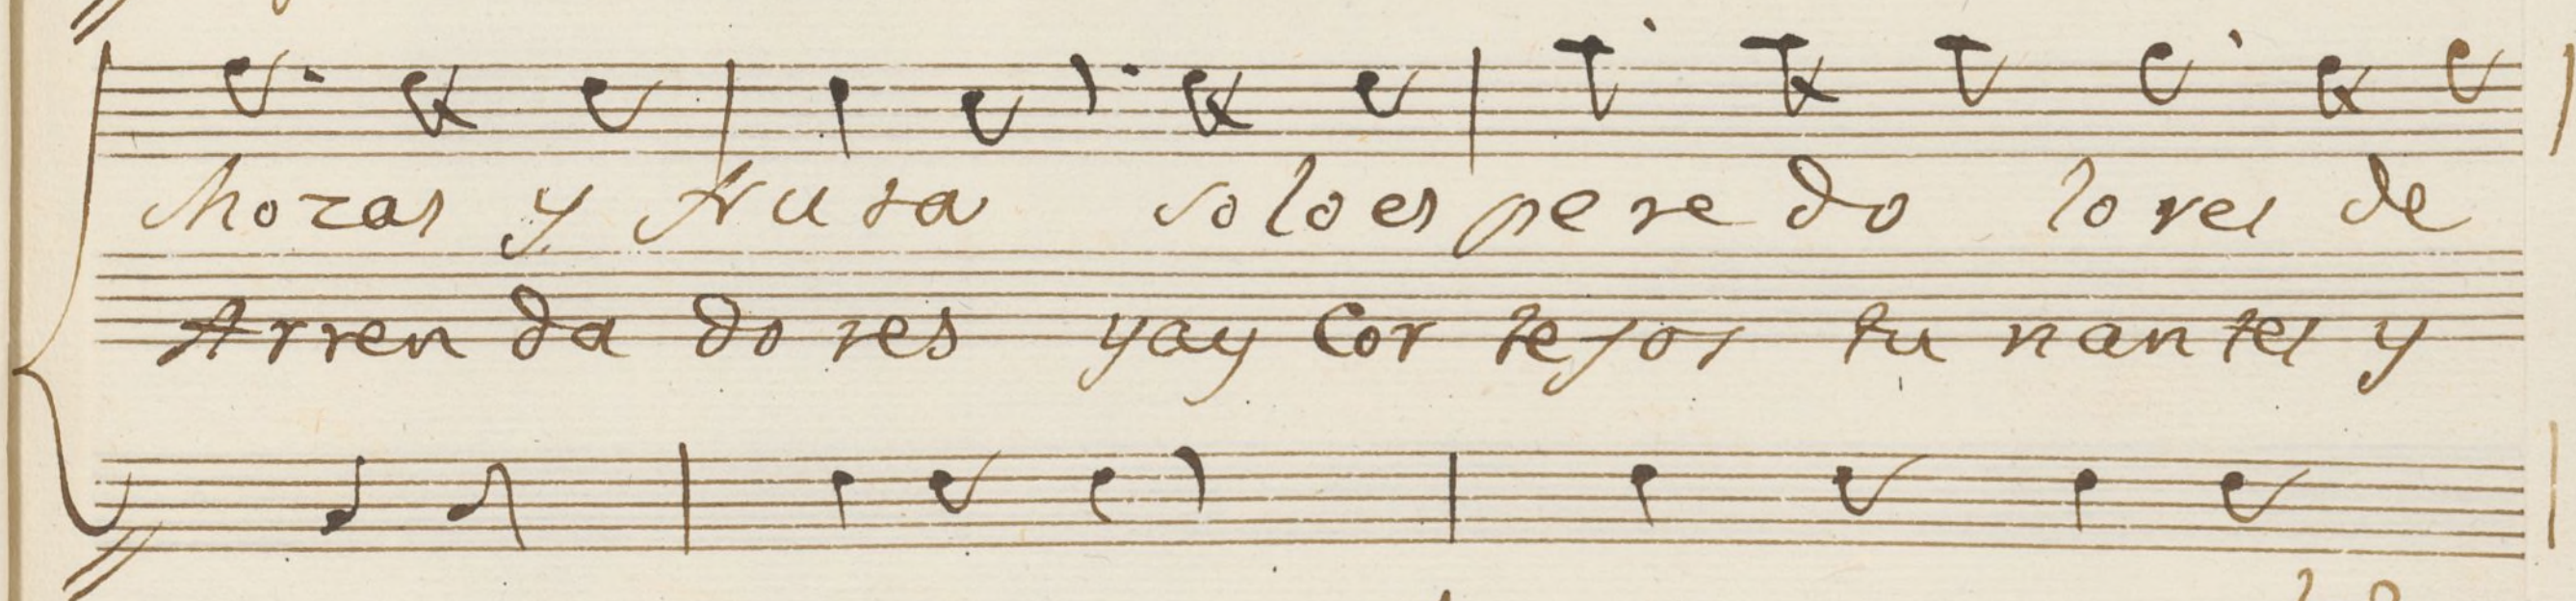 Mozas y fru ta so lo es pe re do lo res de
Arren da do res y ay Cor te jos tu nan tes y